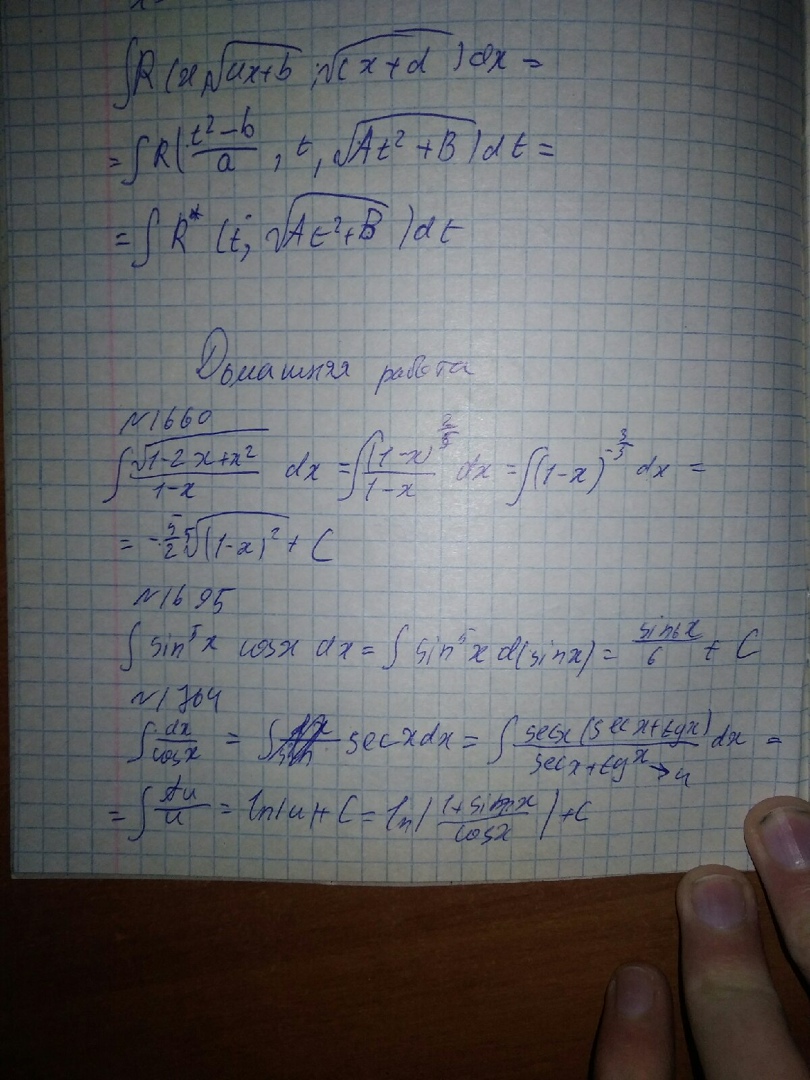 ∫R(x, √(ax+b); √(cx+d))dx =
= ∫R((t²-b)/a, t, √(At²+B))dt =
= ∫R*(t; √(At²+B))dt
Домашняя работа
№1660
∫ √(1-2x+x²)/(1-x) dx = ∫ (1-x)^(2/5)/(1-x) dx = ∫(1-x)^(-3/5) dx =
= -5/2 ⁵√(1-x)² + C
№1695
∫ sin⁵x cosx dx = ∫ sin⁵x d(sinx) = sin6x/6 + C
№1764
∫ dx/cosx = ∫ secxdx = ∫ secx(secx+tgx)/(secx+tgx→u) dx =
= ∫ du/u = ln|u|+C = ln|(1+sinx)/cosx|+C